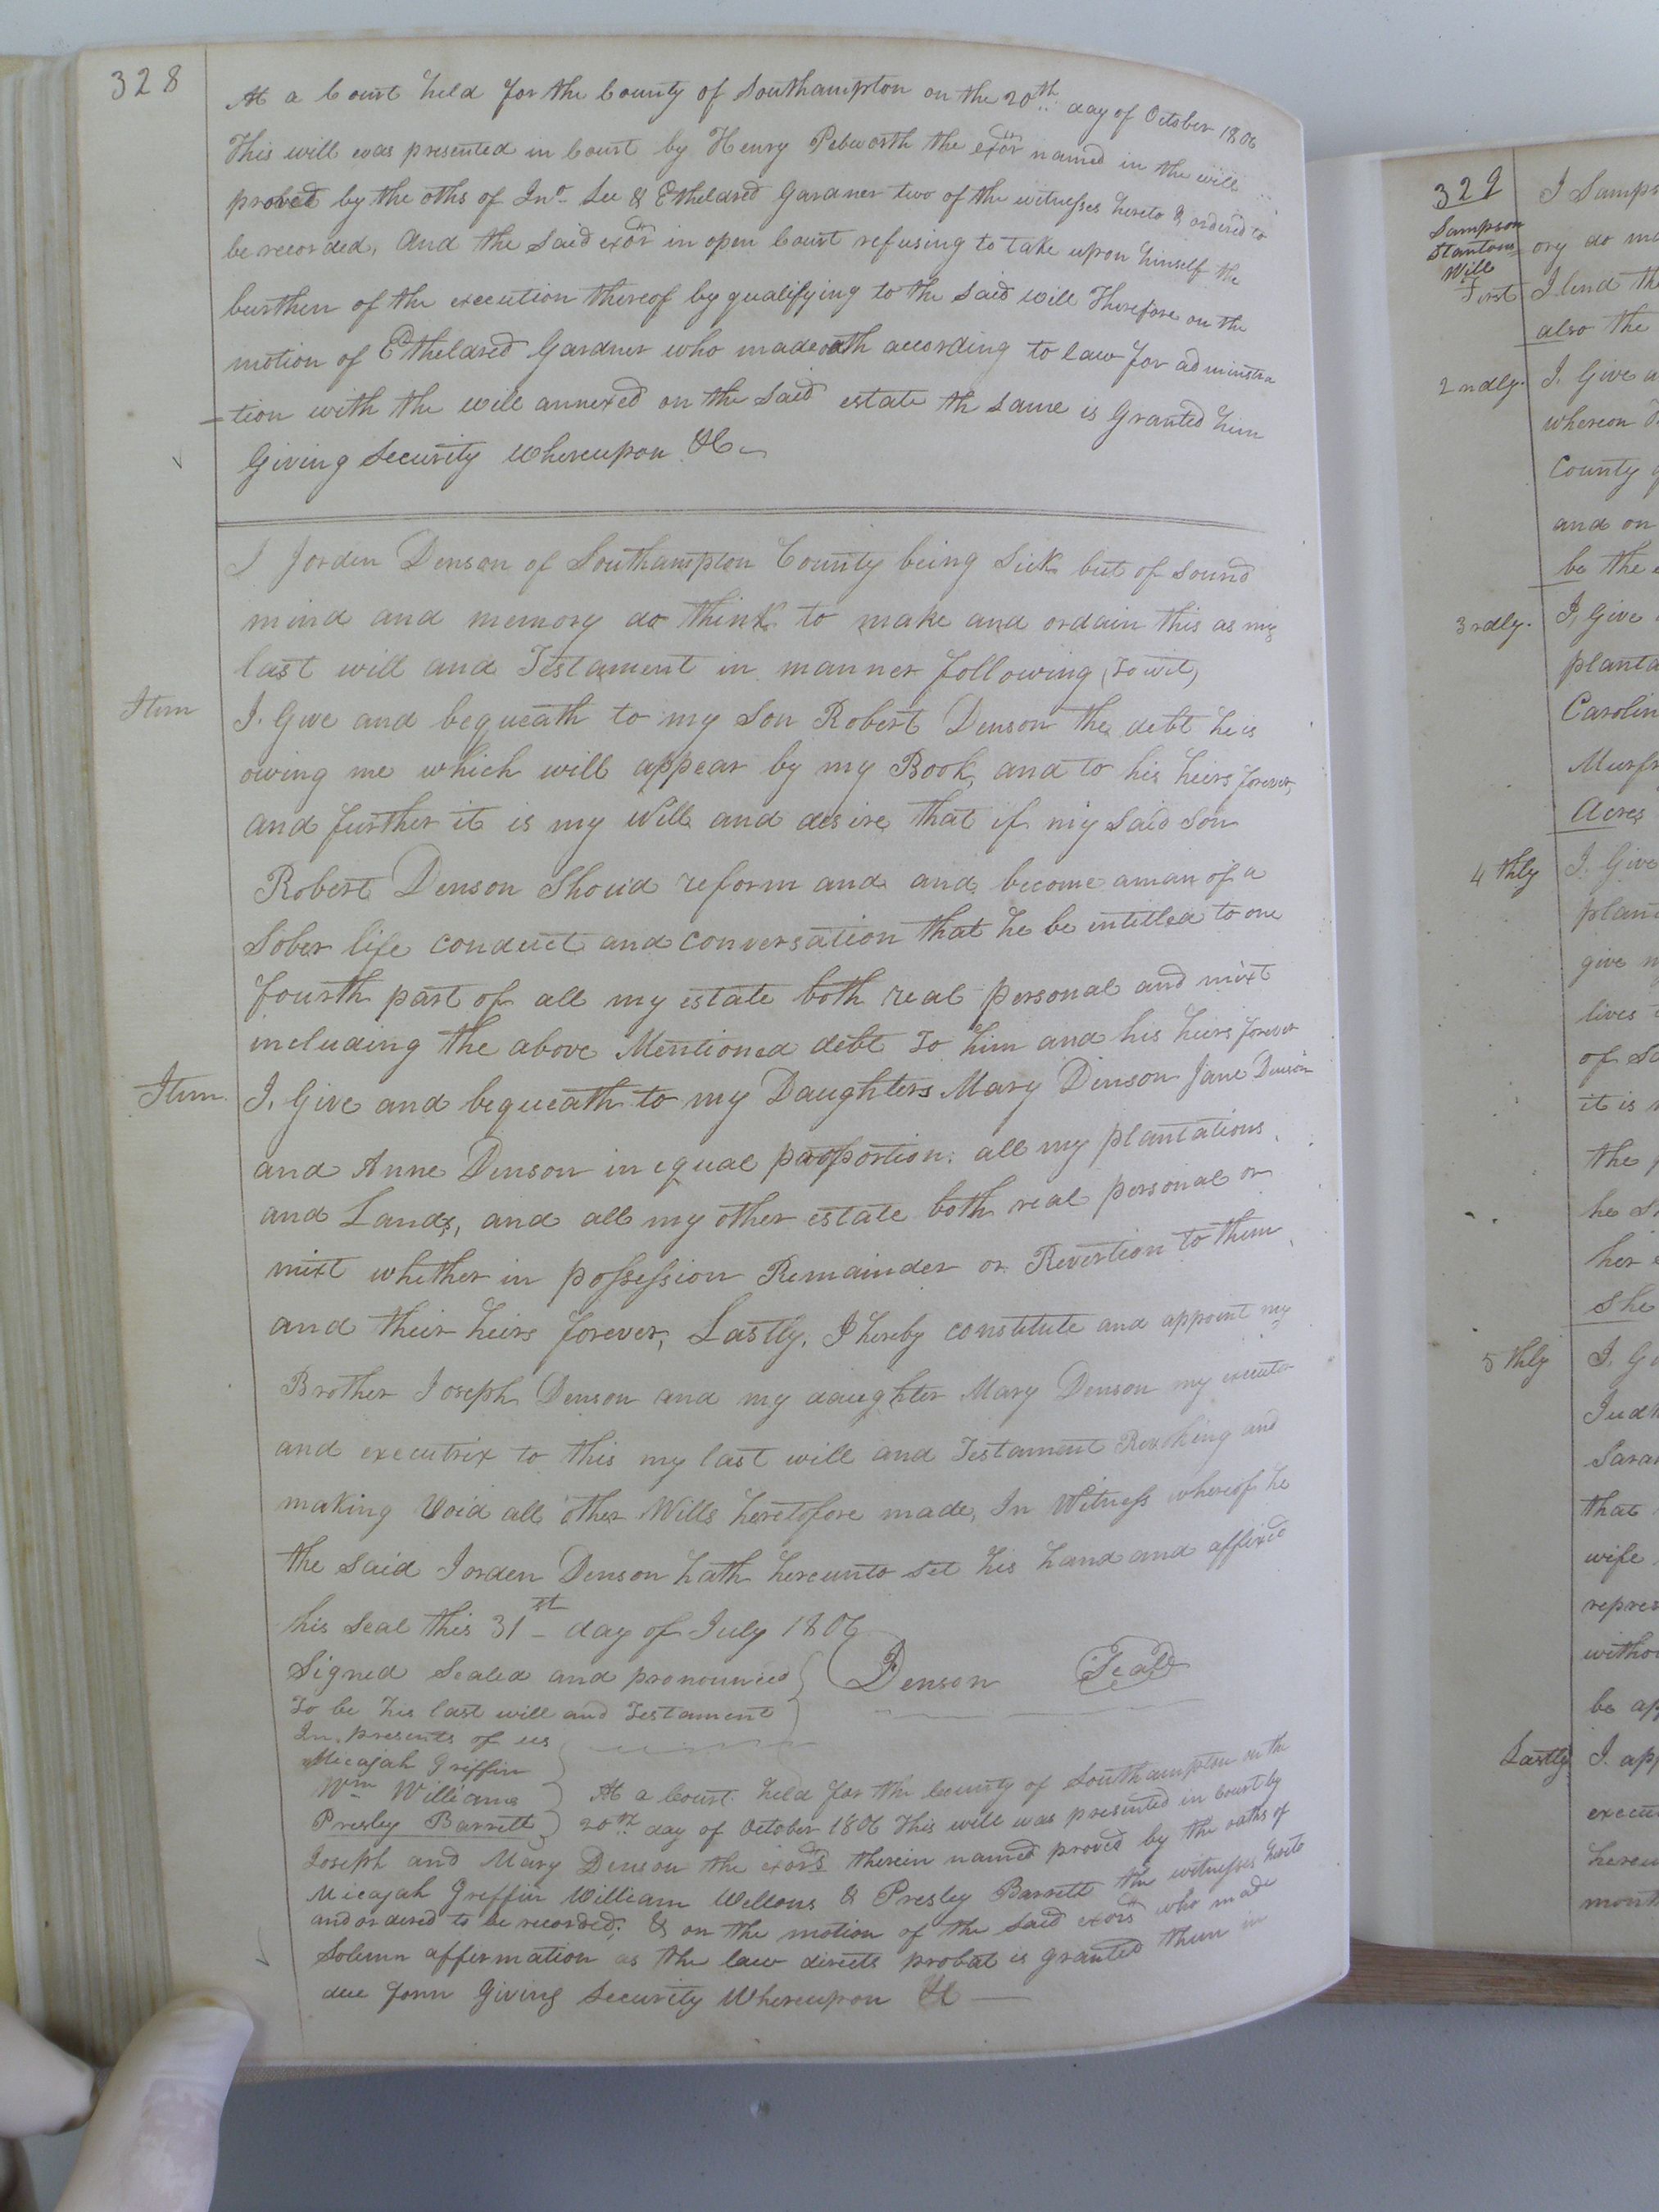 328
At a Court held for the County of Southampton on the 20th day of October 1806
This will was presented in Court by Henry Pebworth the exor named in the will
proved by the oths of Jno. Lee & Etheldred Gardner two of the witnesses hereto & ordered to
be recorded, And the said exor in open Court refusing to take upon himself the
burthen of the execution thereof by qualifying to the said will Therefore on the
motion of Etheldred Gardner who made oath according to law for administra
-tion with the will annexed on the said estate th same is Granted him
Giving Security Whereupon &c
I Jorden Denson of Southampton County being Sick but of Sound
mind and memory do think to make and ordain this as my
last will and Testament in manner following (to wit)
Item I. Give and bequeath to my Son Robert Denson the debt he is
owing me which will appear by my Book, and to his heirs forever,
and further it is my Will and desire that if my Said Son
Robert Denson Shou'd reform and and become a man of a
Sober life conduct and conversation that he be intitled to one
fourth part of all my estate both real personal and mixt
including the above Mentioned debt To him and his heirs forever
Item. I. Give and bequeath to my Daughters Mary Denson Jane Denson
and Anne Denson in equal proportion: all my plantations
and Lands, and all my other estate both real personal or
mixt whether in possession Remainder or Revertion to them
and their heirs forever, Lastly, I hereby constitute and appoint my
Brother Joseph Denson and my daughter Mary Denson my executor
and executrix to this my last will and Testament Revoking and
making Void all other Wills heretofore made, In Witness whereof he
the said Jorden Denson hath hereunto set his hand and affixed
his Seal this 31st day of July 1806
Signed Sealed and pronounced } Denson Seal
To be his last will and Testament
In presents of us
Micajah Griffin
Wm Williams
Presley Barrett
At a Court held for the County of Southampton on the
20th day of October 1806 This will was presented in Court by
Joseph and Mary Denson the exors therein named proved by the oaths of
Micajah Griffin William Wellons & Presley Barrett the witnesses hereto
and ordered to be recorded; & on the motion of the said exors who made
Solemn affermation as the law directs probat is granted them in
due form Giving Security Whereupon &c
329
Sampson
Stantons
Will
I Samps
ory do ma
First I lend th
also the
2ndly. I. Give a
whereon
County
and on
be the
3rdly. I, Give
planta
Carolin
Murfr
Acres
4thly I. Give
plan
give m
lives
of
it is
the
he sh
her
she
5thly I. Gi
Jud
Sara
that
wife
repres
witho
be ap
Lastly I. app
execu
hereu
mont